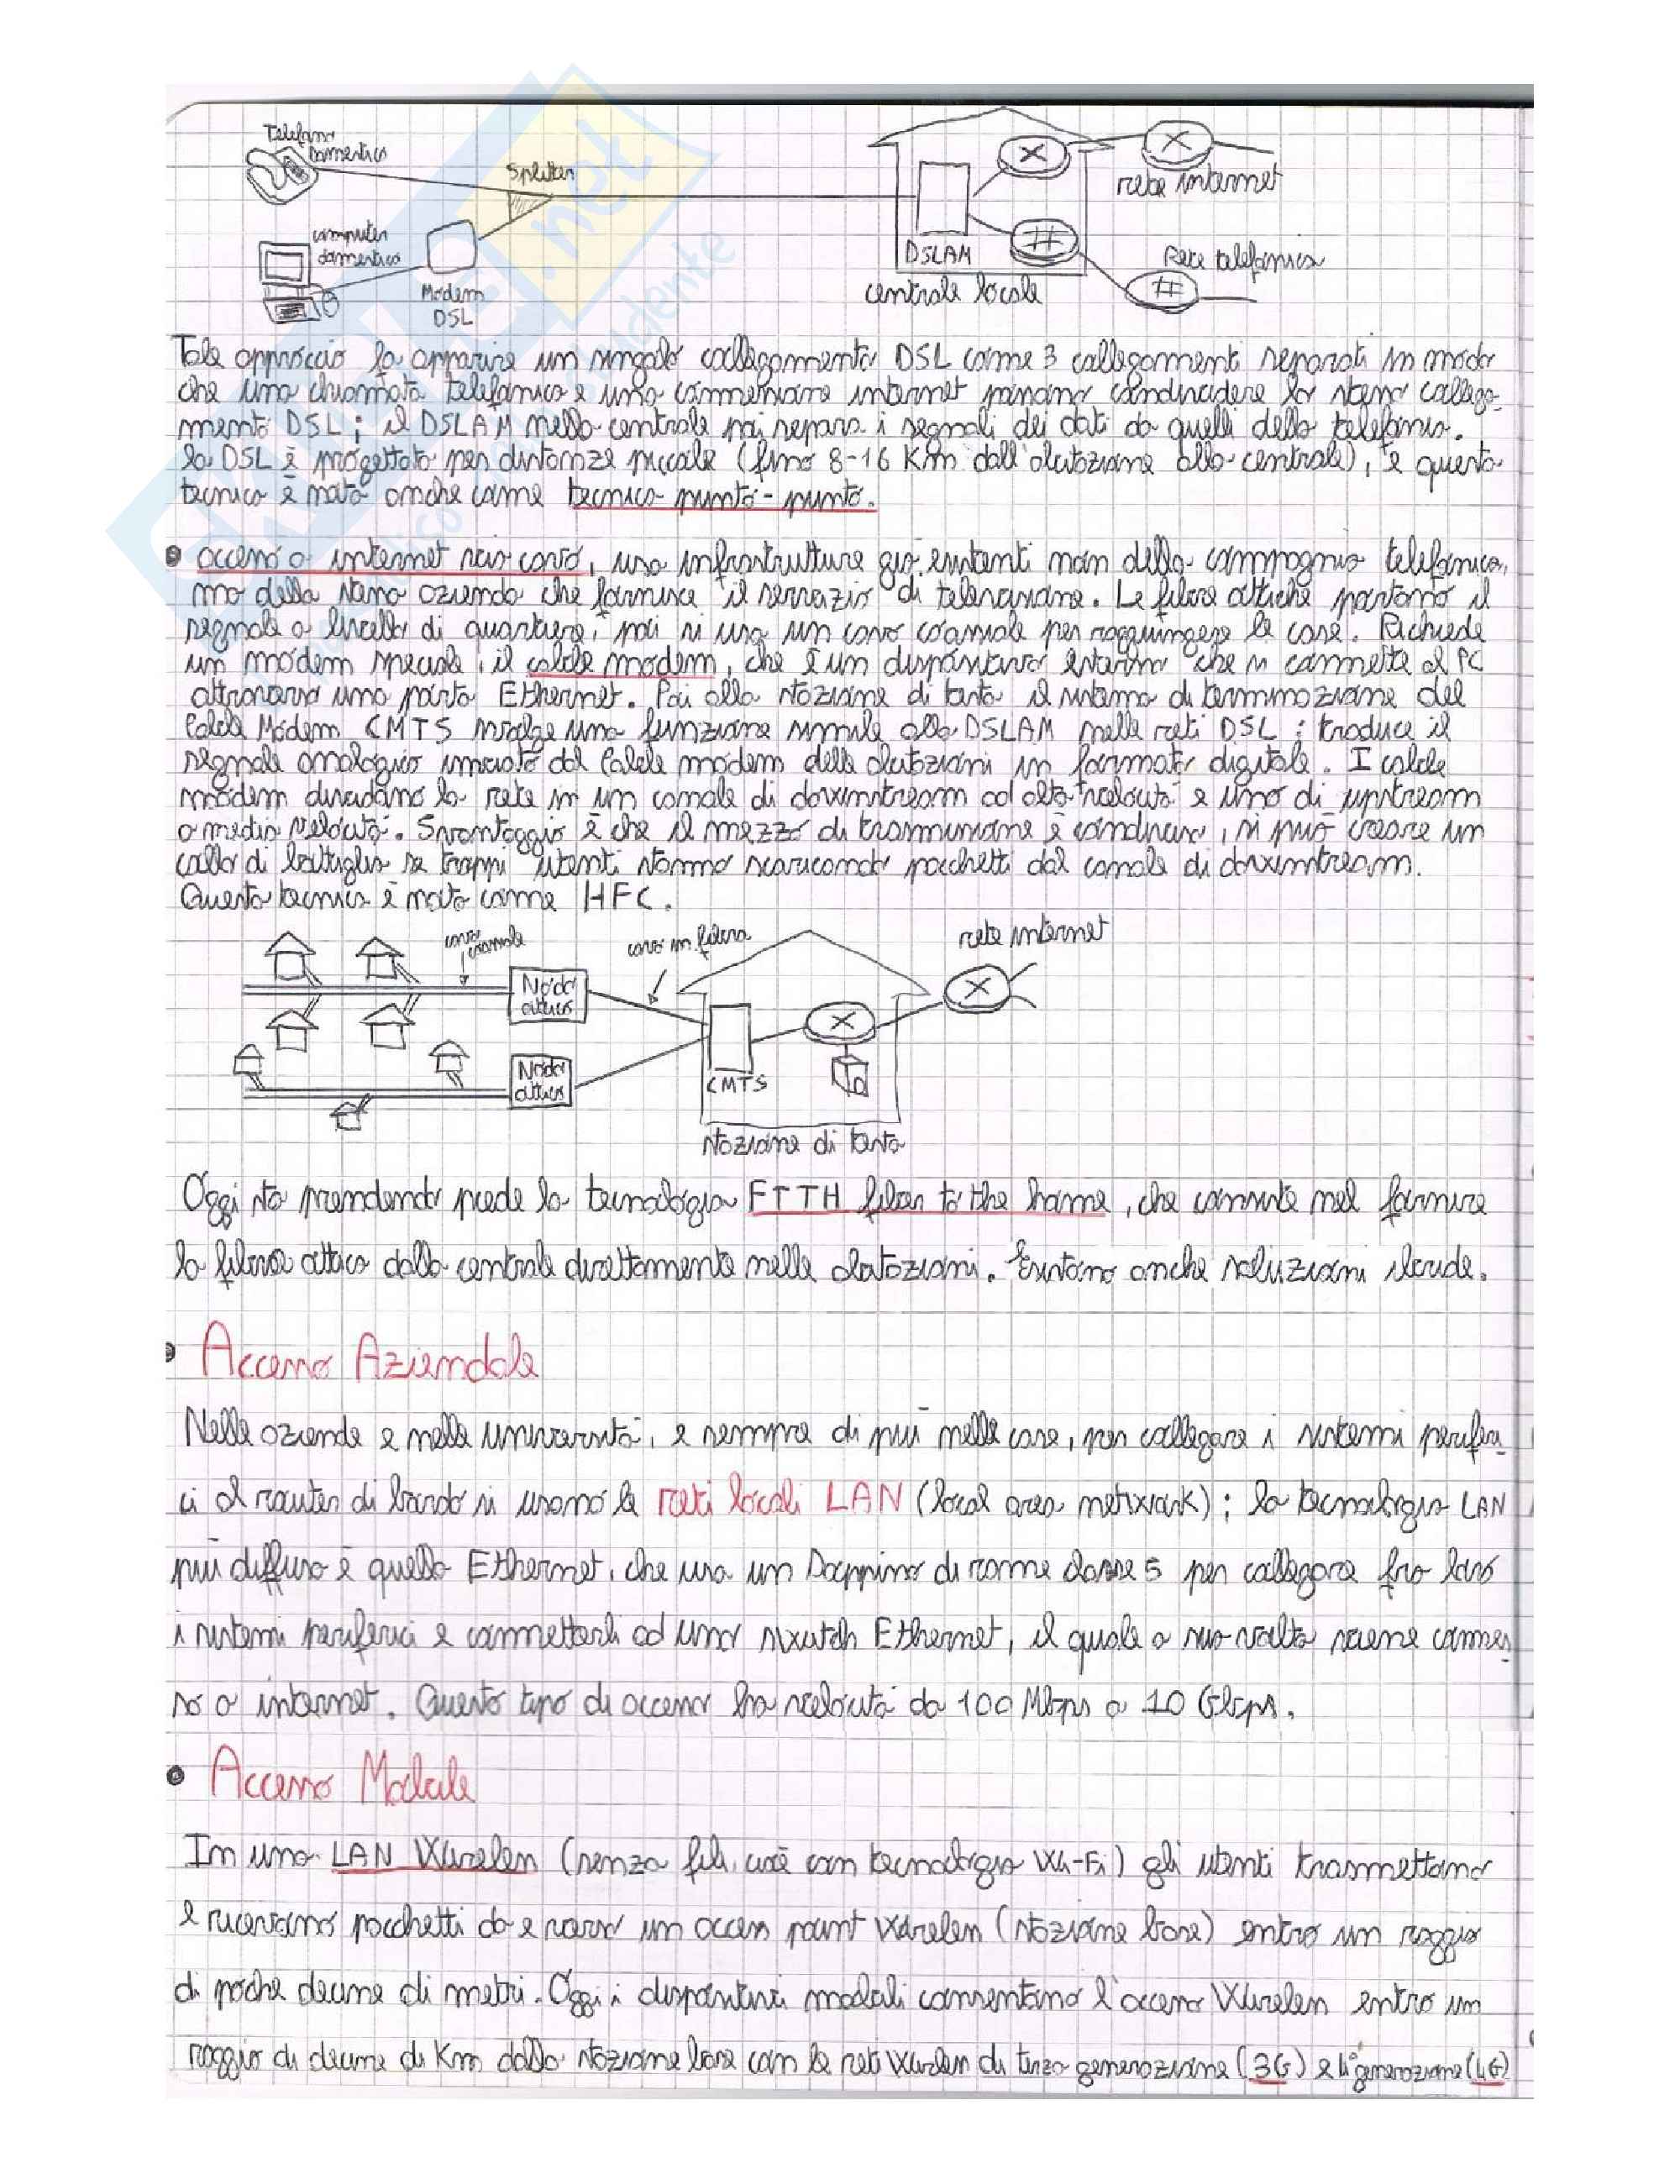 Telefono
domestico
Splitter
computer
domestico
Modem
DSL
DSLAM
centrale locale
rete internet
Rete telefonica
Tale approccio fa apparire un singolo collegamento DSL come 3 collegamenti separati in modo
che una chiamata telefonica e una connessione internet possano condividere lo stesso collega-
mento DSL; il DSLAM nella centrale poi separa i segnali dei dati da quelli della telefonia.
la DSL è progettata per distanze piccole (fino 8-16 Km dall'abitazione alla centrale), e questa
tecnica è nota anche come tecnica punto-punto.
• accesso a internet via cavo, usa infrastrutture già esistenti non della compagnia telefonica,
ma della stessa azienda che fornisce il servizio di televisione. Le fibre ottiche portano il
segnale a livello di quartiere, poi si usa un cavo coassiale per raggiungere le case. Richiede
un modem speciale, il cable modem, che è un dispositivo esterno che si connette al PC
attraverso una porta Ethernet. Poi alla stazione di testa il sistema di terminazione del
Cable Modem CMTS svolge una funzione simile alla DSLAM nelle reti DSL: traduce il
segnale analogico inviato dal Cable modem delle abitazioni in formato digitale. I cable
modem dividono la rete in un canale di downstream ad alta velocità e uno di upstream
a media velocità. Svantaggio è che il mezzo di trasmissione è condiviso, si può creare un
collo di bottiglia se troppi utenti stanno scaricando pacchetti dal canale di downstream.
Questa tecnica è nota come HFC.
cavo
coassiale
cavo in fibra
rete internet
Nodo
ottico
Nodo
ottico
CMTS
stazione di testa
Oggi sta prendendo piede la tecnologia FTTH fiber to the home, che consiste nel fornire
la fibra ottica dalla centrale direttamente nelle abitazioni. Esistono anche soluzioni ibride.
• Accesso Aziendale
Nelle aziende e nelle università, e sempre di più nelle case, per collegare i sistemi periferi-
ci al router di bordo si usano le reti locali LAN (local area network); la tecnologia LAN
più diffusa è quella Ethernet, che usa un Doppino di rame classe 5 per collegare fra loro
i sistemi periferici e connetterli ad uno switch Ethernet, il quale a sua volta viene connes-
so a internet. Questo tipo di accesso ha velocità da 100 Mbps a 10 Gbps.
• Accesso Mobile
In una LAN Wireless (senza fili, cioè con tecnologia Wi-Fi) gli utenti trasmettono
e ricevono pacchetti da e verso un access point Wireless (stazione base) entro un raggio
di poche decine di metri. Oggi i dispositivi mobili consentono l'accesso Wireless entro un
raggio di decine di Km dalla stazione base con le reti Wireless di terza generazione (3G) e 4° generazione (4G)